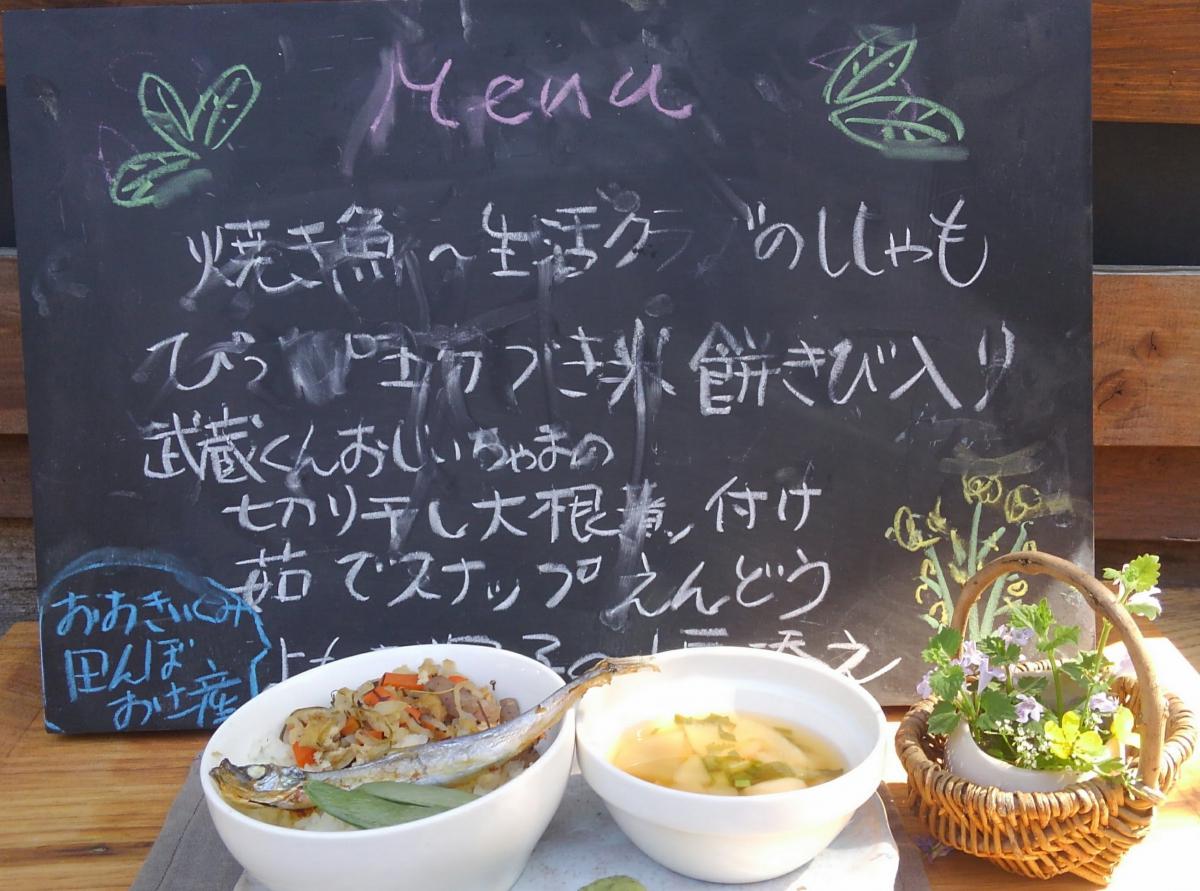 Menu
焼き魚～生活クラブのししゃも
ぴっ 分づき米 餅きび入り
武蔵くんおじいちゃまの
切り干し大根煮付け
茹でスナップえんどう
添え
おおきいくみ
田んぼ
おけ産